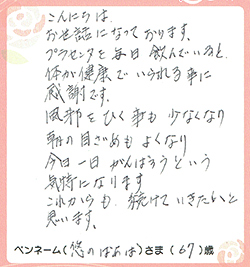 こんにちは、
お世話になっております。
プラセンタを毎日飲んでいると、
体が健康でいられる事に
感謝です。
風邪をひく事も少なくなり
朝の目ざめもよくなり
今日一日がんばろうという
気持になります
これからも、続けていきたいと
思います。
ペンネーム(悠のばぁば)さま(67)歳